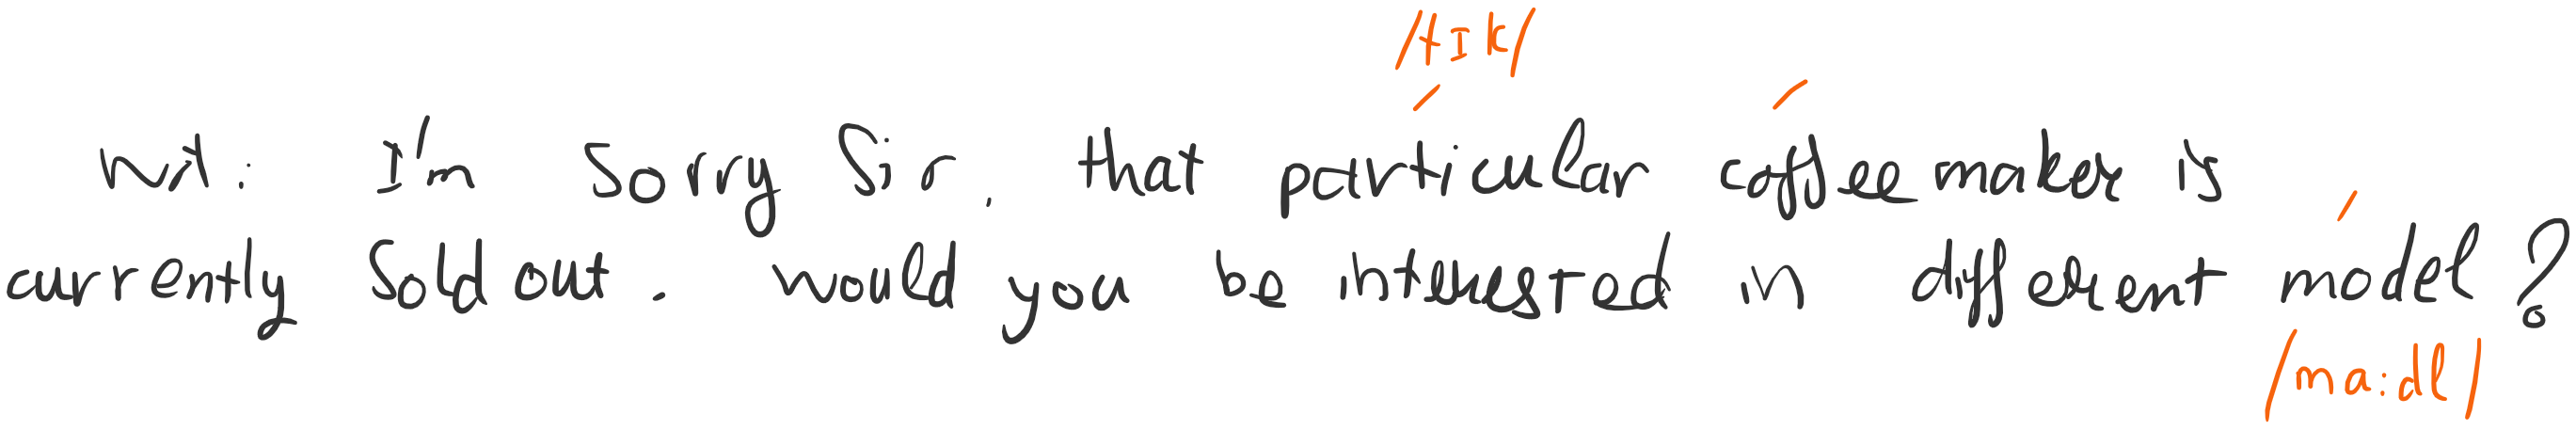 /tɪk/
Wit: I'm sorry Sir, that particular coffee maker is
currently sold out. would you be interested in different model?
/ma:dl/